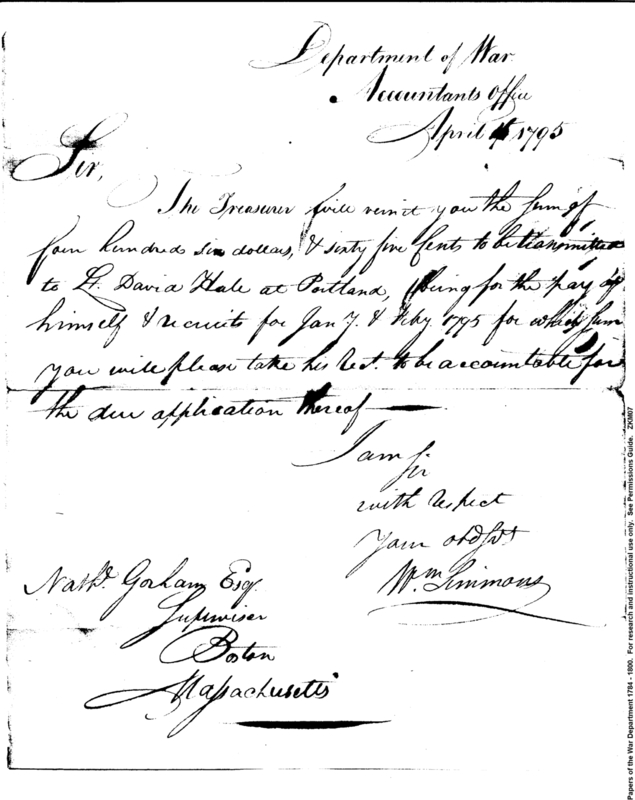 Department of War
Accountants Office
April 4 1795
Sir,
The Treasurer will remit you the sum of
four hundred six dollars, & sixty five cents to be transmitted
to Lt. David Hale at Portland, being for the pay of
himself & recruits for Jany. & Feby 1795 for which sum
you will please take his Rect. to be accountable for
the due application thereof
I am
Sir
with respect
Your obd Svt
Wm Simmons
Nathl. Gorham Esqr.
Supervisor
Boston
Massachusetts
Papers of the War Department 1784 - 1800. For research and instructional use only. See Permissions Guide. ZKM07